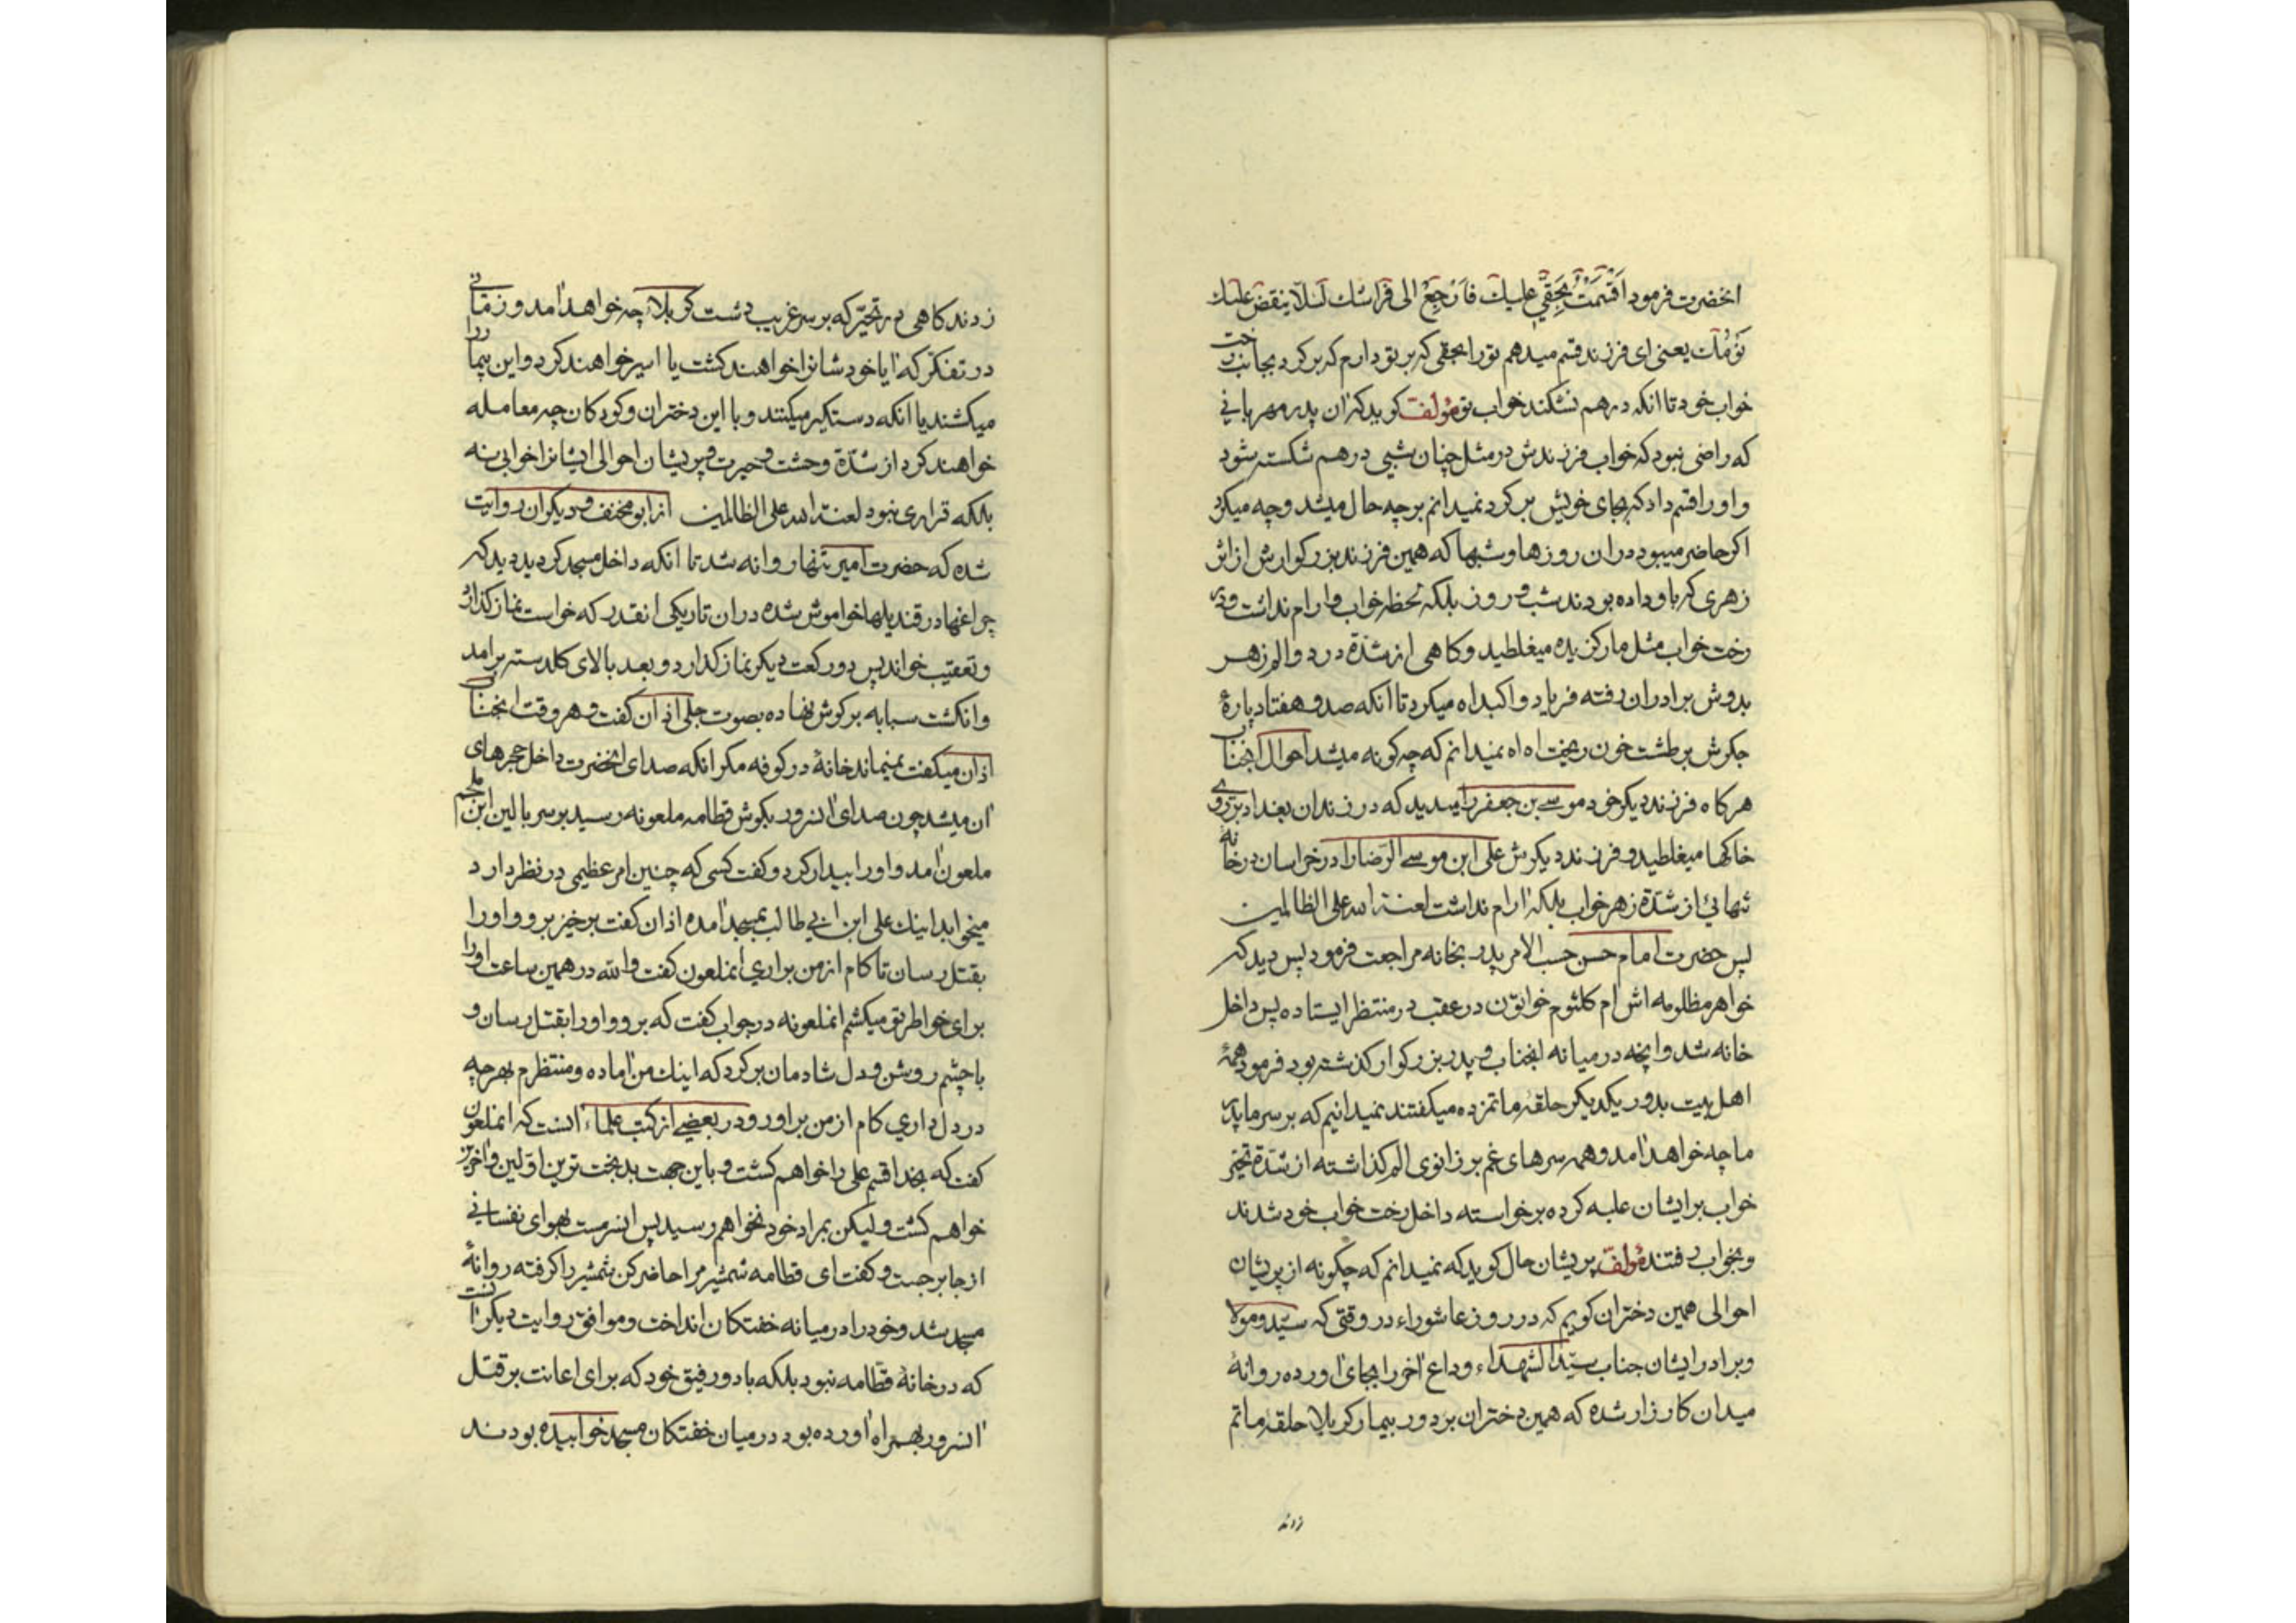 انحضرت فرمود اَقْسَمْتُ بِحَقّي عليك فاَرْجِعْ الى فراشك لئلّا ينقض عليك
نَوْمُك يعنى اى فرزند قسم ميدهم تو را بحقى كه بر تو دارم كه بر كرد بجانب رخت
خواب خود تا انكه درهم نشكند خواب تو مؤلف كويد كه ان پدر مهربانى
كه راضى نبود كه خواب فرزندش در مثل چنان شبى درهم شكسته شود
و او را قسم داد كه بجاى خويش بر كرد نميدانم بر چه حال ميشد و چه ميكرد
اكر حاضر ميبود در ان روزها و شبها كه همين فرزند بزركوارش از اثر
زهرى كه باو داده بودند شب و روز بلكه لحظه خواب و ارام نداشت و در
رخت خواب مثل مار كزيده ميغلطيد و كاهى از شدّة درد و الم زهر
بدوش برادران رفته فرياد وا كبداه ميكرد تا انكه صد و هفتاد پارهٔ
جكرش بر طشت خون ريخت اه اه نميدانم كه چه كونه ميشد احوال انجناب
هر كاه فرزند ديكر خود موسى بن جعفر را ميديد كه در زندان بغداد بر روى
خاكها ميغلطيد و فرزند ديكرش على ابن موسى الرّضا را در خراسان در خانه
تنهائى از شدّة زهر خواب بلكه ارام نداشت لعنة الله على الظالمين
پس حضرت امام حسن حسب الامر پدر بخانه مراجعت فرمود پس ديد كه
خواهر مظلومه اش ام كلثوم خواتون در عقب در منتظر ايستاده پس داخل
خانه شد و انچه در ميانه انجناب و پدر بزركوار كذشته بود فرمود همهٔ
اهل بيت بدور يكديكر حلقه ماتم زده ميكفتند نميدانيم كه بر سر ما پدر
ما چه خواهد امد و همه سرهاى غم بر زانوى الم كذاشته از شدّة تحيّر
خواب بر ايشان غلبه كرده برخواسته داخل رخت خواب خود شدند
و بخواب رفتند مؤلف پريشان حال كويد كه نميدانم كه چكونه از پريشان
احوالى همين دختران كويم كه در روز عاشوراء در وقتى كه سيّد و مولا
و برادر ايشان جناب سيّد الشهداء وداع اخر را بجاى اورده روانهٔ
ميدان كارزار شده كه همين دختران بر دور بيمار كربلا حلقه ماتم
زدند
زدند كاهى در تحيّر كه بر سر غريب دشت كربلاء چه خواهد امد و زمانى
در تفكر كه ايا خود شانرا خواهند كشت يا اسير خواهند كرد و اين بيمار را
ميكشند يا انكه دستكير ميكنند و با اين دختران و كودكان چه معامله
خواهند كرد از شدّة وحشت و حيرت و پريشان احوالى ايشانرا خوابى نه
بلكه قرارى نبود لعنة الله على الظالمين از ابو مخنف و ديكران روايت
شده كه حضرت امير تنها روانه شد تا انكه داخل مسجد كرديد ديد كه
چراغها در قنديلها خواموش شده در ان تاريكى انقدر كه خواست نماز كذارد
و تعقيب خواند پس دو ركعت ديكر نماز كذارد و بعد بالاى كلدسته بر امد
و انكشت سبابه بر كوش نهاده بصوت جلى اذان كفت و هر وقت انجناب
اذان ميكفت نميماند خانهٔ در كوفه مكر انكه صداى انحضرت داخل حجرهاى
ان ميشد چون صداى انسرور بكوش قطامه ملعونه رسيد بر سر بالين ابن ملجم
ملعون امد و او را بيدار كرد و كفت كسى كه چنين امر عظيمى در نظر دارد
ميخوابد اينك على ابن ابي طالب بمسجد امده اذان كفت برخيز برو و او را
بقتل رسان تا كام از من برارى انملعون كفت والله در همين ساعت او را
براى خواطر تو ميكشم انملعونه در جواب كفت كه برو و او را بقتل رسان و
با چشم روشن و دل شادمان بر كرد كه اينك من اماده و منتظرم بهر چه
در دل داري كام از من بر اور و در بعضى از كتب علماء انست كه انملعون
كفت كه بخدا قسم على را خواهم كشت و باين جهت بد بخت ترين اوّلين و اخرين
خواهم كشت و ليكن بمراد خود نخواهم رسيد پس انسرمست بهواى نفسانى
از جا برجست و كفت اى قطامه شمشير مرا حاضر كن شمشير را كرفته روانهٔ
مسجد شد و خود را در ميانه خفتكان انداخت و موافق روايت ديكر انست
كه در خانهٔ قطامه نبود بلكه با دو رفيق خود كه براى اعانت بر قتل
انسرور بهمراه اورده بود در ميان خفتكان مسجد خوابيده بودند